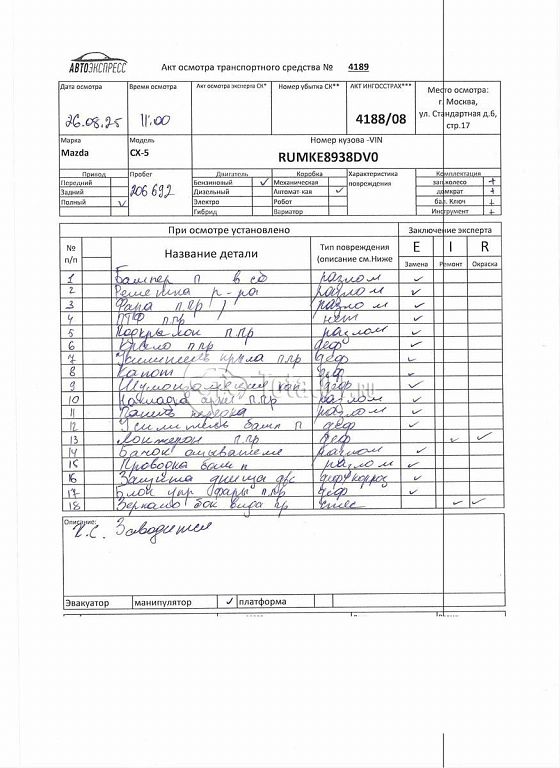 АВТОЭКСПРЕСС
Акт осмотра транспортного средства № 4189
Дата осмотра Время осмотра Акт осмотра эксперта СК* Номер убытка СК** АКТ ИНГОССТРАХ*** Место осмотра:
26.08.25 11:00 4188/08 г. Москва,
ул. Стандартная д.6,
стр.17
Марка Модель Номер кузова -VIN
Mazda CX-5 RUMKE8938DV0
Привод Пробег Двигатель Коробка Характеристика повреждения Комплектация
Передний 206 692 Бензиновый ✓ Механическая зап.колесо +
Задний Дизельный Автомат-кая ✓ домкрат +
Полный ✓ Электро Робот бал. Ключ +
Гибрид Вариатор Инструмент +
При осмотре установлено Заключение эксперта
№ п/п Название детали Тип повреждения (описание см.Ниже E I R
Замена Ремонт Окраска
1 Бампер п в сб разлом ✓
2 Решетка р-ра разлом ✓
3 Фара п.пр разлом ✓
4 ПТФ п.пр нет ✓
5 Подкрылок п.пр разлом ✓
6 Крыло п.пр деф ✓
7 Усилитель крыла п.пр деф ✓
8 Капот деф ✓
9 кап деф ✓
10 Накладка п.пр разлом ✓
11 Панель разлом ✓
12 Усилитель бамп п деф ✓
13 Лонжерон п.пр деф ✓ ✓
14 Бачок омывателя разлом ✓
15 Проводка бамп п разлом ✓
16 Защита днища двс деф ✓
17 Блок упр фары п.пр деф ✓
18 Зеркало бок вида пр ✓ ✓
Описание:
К.С. Заводится
Эвакуатор манипулятор ✓ платформа